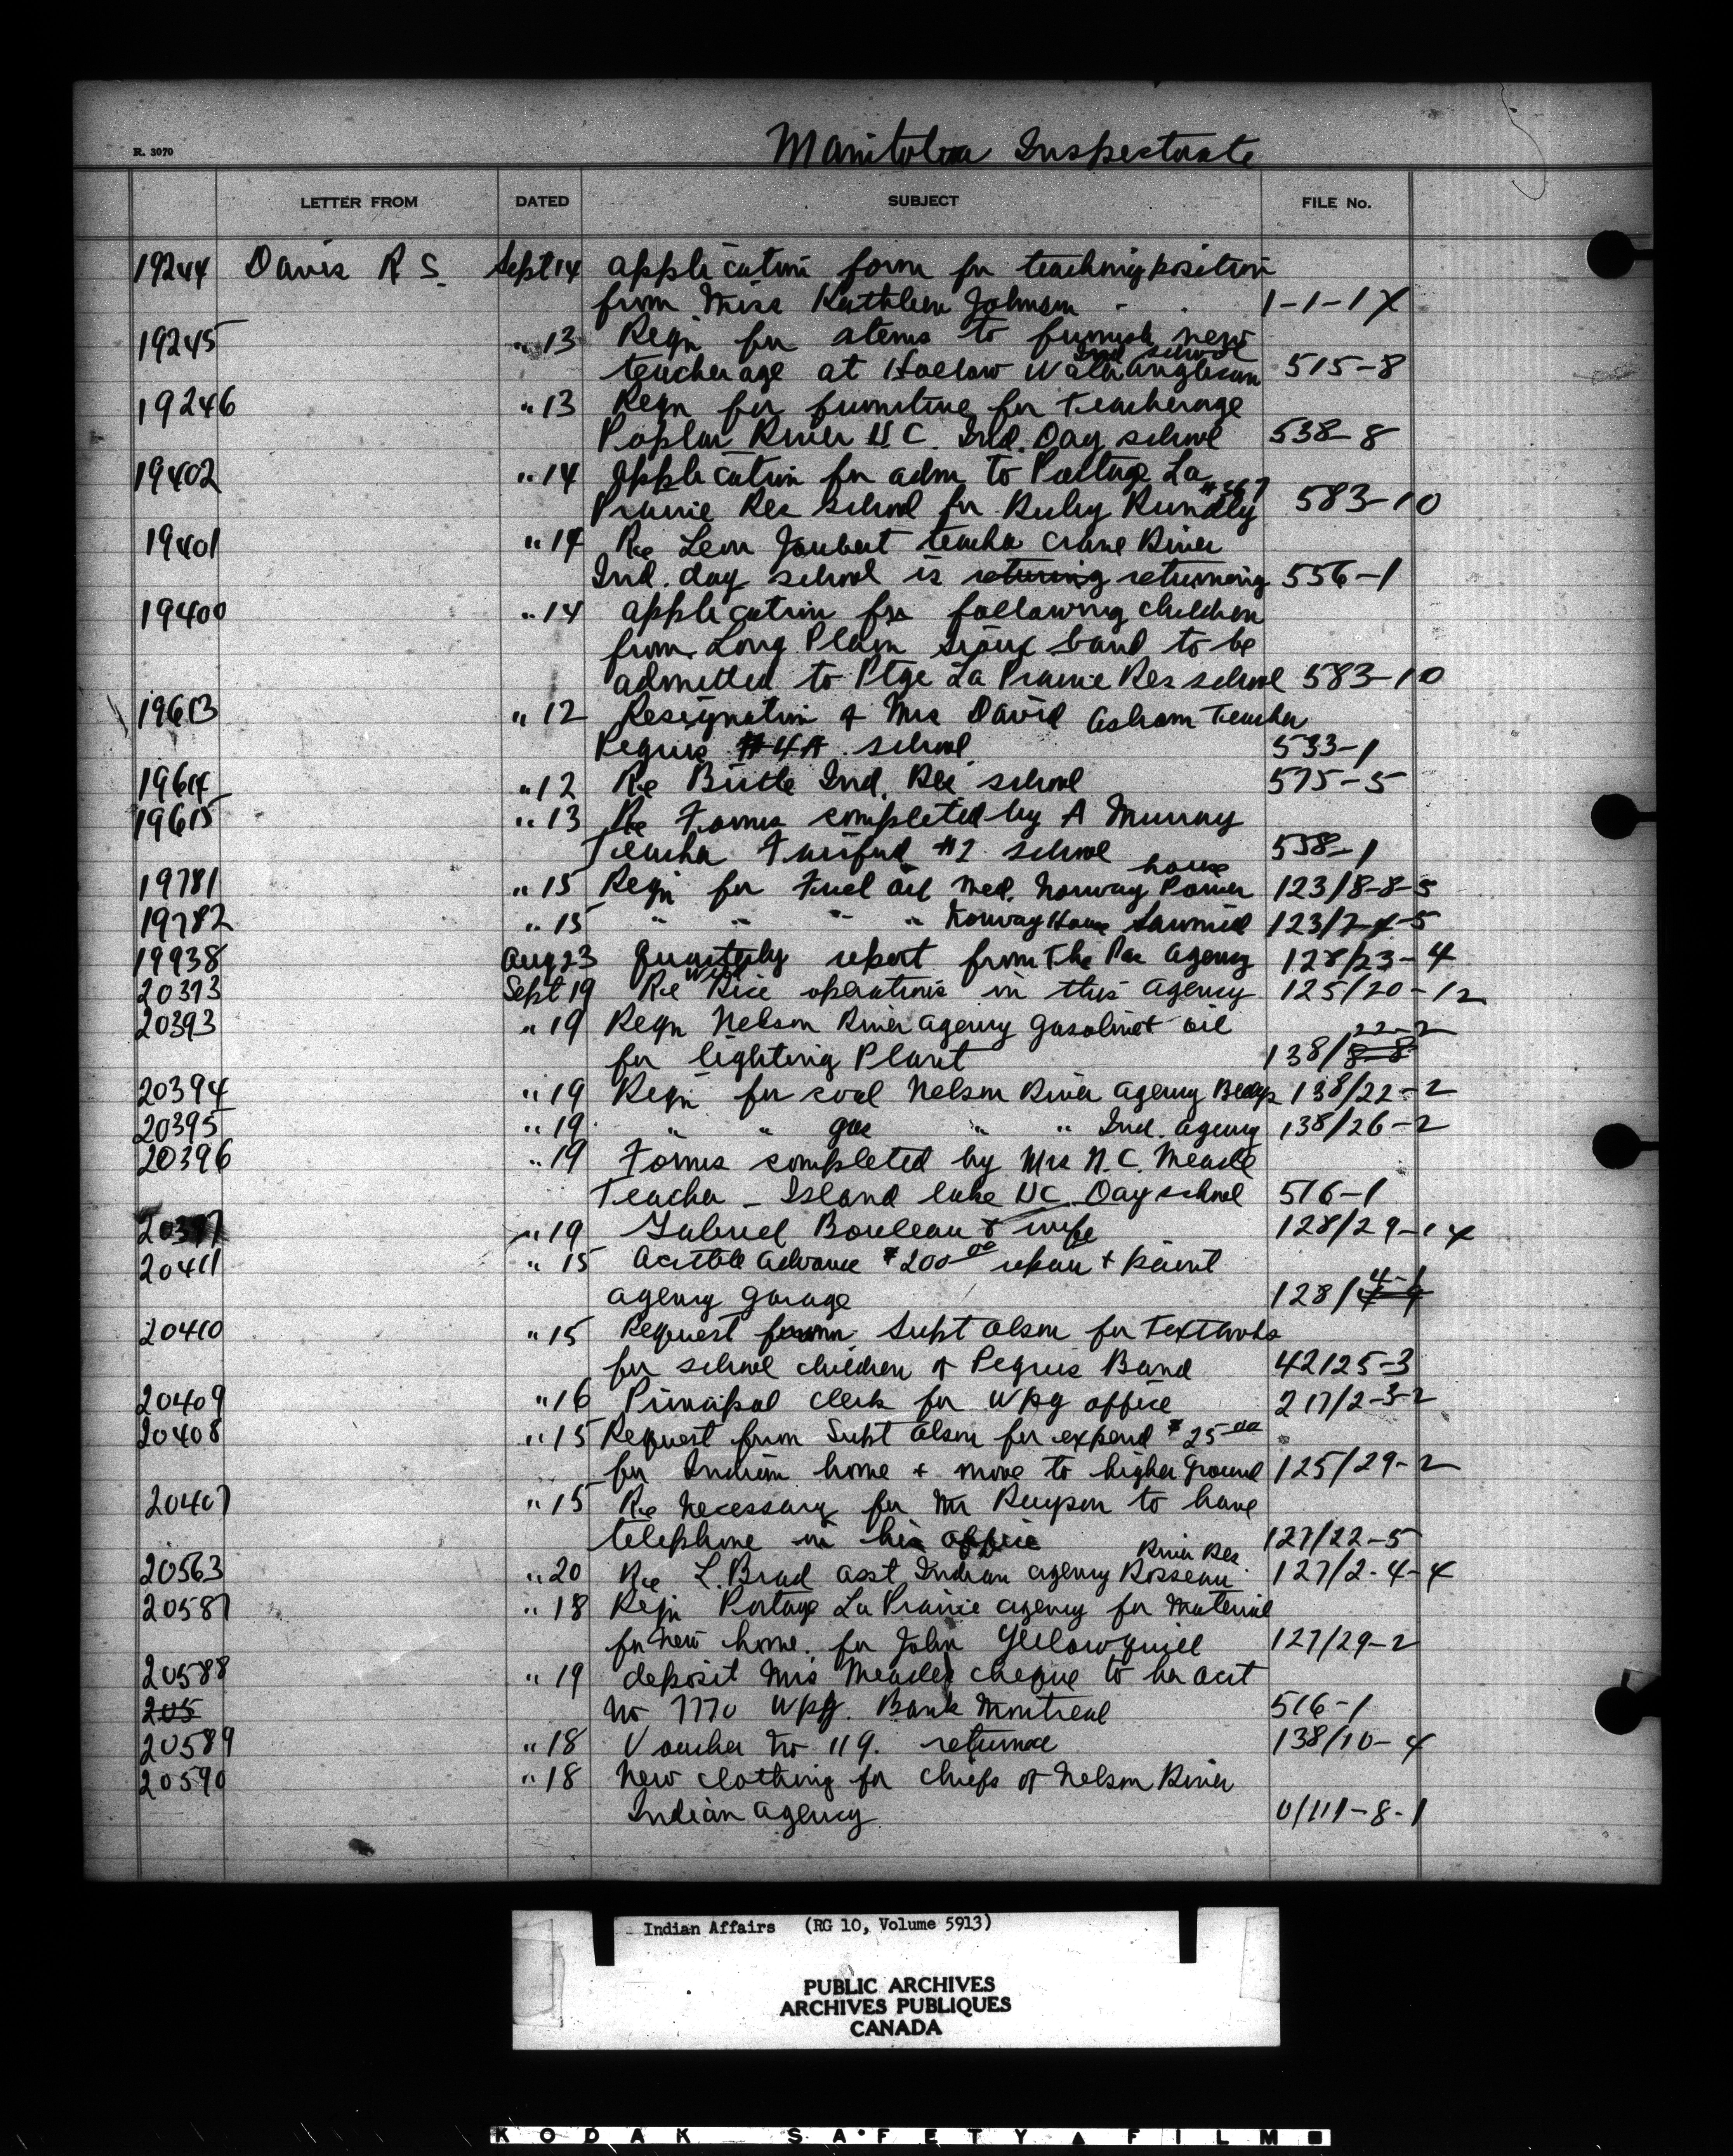 Manitoba Inspectorate
R. 3070
LETTER FROM DATED SUBJECT FILE No.
19244 Davis R S. Sept 14 application form for teaching position
from Miss Kathleen Johnson - 1-1-1X
19245 " 13 Reqn for items to furnish new
Ind school
teacherage at Hollow Water Anglican 515-8
19246 " 13 Reqn for furniture for Teacherage
Poplar River U.C. Ind. Day school 538-8
19402 " 14 Application for adm to Portage La
Prairie Res School for Ruby #367 583-10
19401 " 14 Re Leon Joubert teacher Crane River
Ind. day school is returing returning 556-1
19400 " 14 application for following children
from Long Plain Sioux band to be
admitted to Ptge La Prairie Res school 583-10
19613 " 12 Resignation of Mrs David Asham Teacher
Peguis school 533-1
19614 " 12 Re Birtle Ind. Res school 575-5
19615 " 13 Re Forms completed by A Murray
Teacher Fairford #1 school 558-1
19781 " 15 Reqn for Fuel oil Med. Norway house Power 123/8-8-5
19782 " 15 " " " " Norway House Sawmill 123/7-4-5
19938 Aug 23 Quarterly report from The Pas Agency 128/23-4
20373 Sept 19 Re Wild Rice operations in this agency 125/20-12
20393 " 19 Reqn Nelson River agency gasoline + oil 22-2
for lighting Plant 138/8-8
20394 " 19 Reqn for coal Nelson River agency 138/22-2
20395 " 19 " " gas " " Ind. agency 138/26-2
20396 " 19 Forms completed by Mrs N.C. Meade
Teacher - Island lake UC Day school 516-1
20397 " 19 Gabriel Bouleau & wife 128/29-14
20411 " 15 Acctble advance $200.00 repair + paint
agency garage 128/4-1
20410 " 15 Request from Supt Olson for Textbooks
for school children of Peguis Band 42125-3
20409 " 16 Principal clerk for Wpg office 217/2-3-2
20408 " 15 Request from Supt Olson for expend $25.00
for Indian home + move to higher ground 125/29-2
20407 " 15 Re Necessary for Mr to have
telephone in his office 127/22-5
20563 " 20 Re L. Brad asst Indian agency Rosseau River Res 127/2-4-4
20587 " 18 Reqn Portage La Prairie agency for material
for new home for John Yellowquill 127/29-2
20588 " 19 deposit Mrs Meade's cheque to her acct
205 No 7770 Wpg. Bank Montreal 516-1
20589 " 18 Voucher No 119. returned 138/10-4
20590 " 18 New clothing for chiefs of Nelson River
Indian agency 0/111-8-1
Indian Affairs (RG 10, Volume 5913)
PUBLIC ARCHIVES
ARCHIVES PUBLIQUES
CANADA
KODAK SAFETY FILM